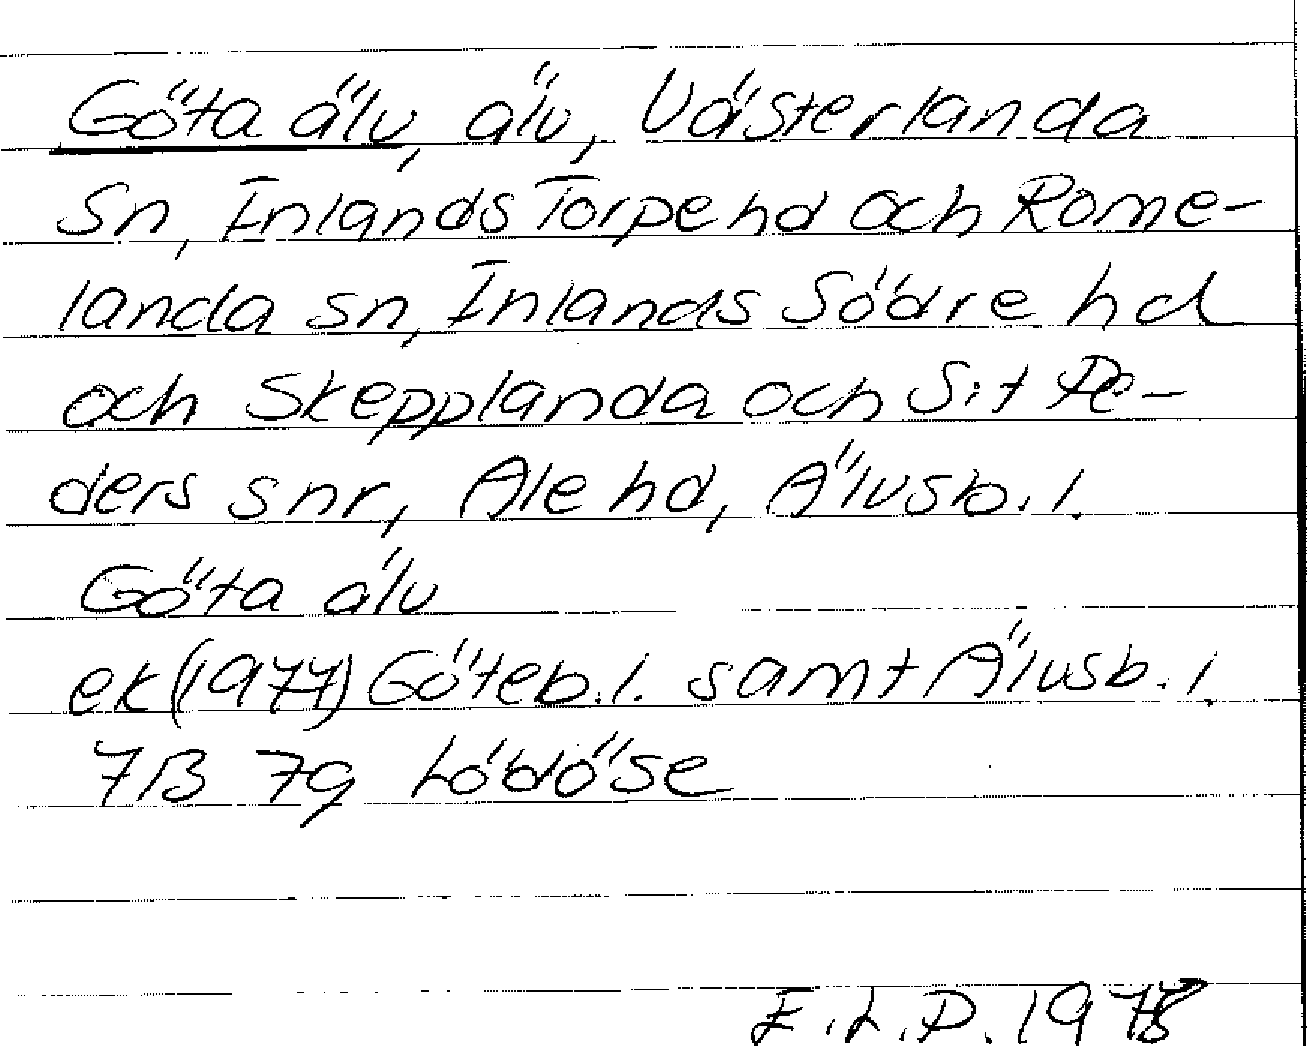 Göta älv, älv, Västerlanda
Sn, Inlands Torpe hd och Rome-
landa sn, Inlands Södre hd
och Skepplanda och S:t Pe-
ders snr, Ale hd, Älvsb. l.
Göta älv
ek (1977) Göteb. l. samt Älvsb. l.
7B 7g Lödöse
E.L.D. 1978